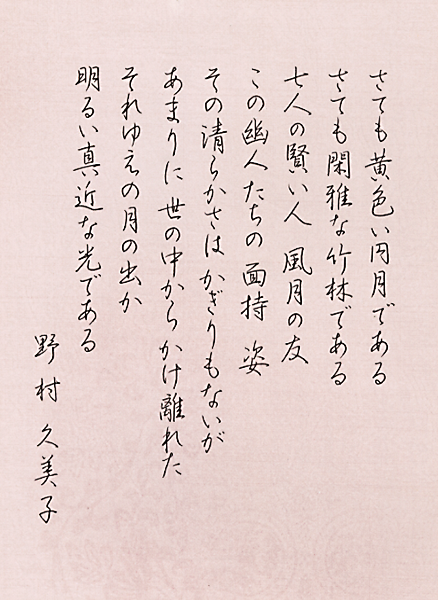 さても黄色い円月である
さても閑雅な竹林である
七人の賢い人 風月の友
この幽人たちの面持 姿
その清らかさはかぎりもないが
あまりに世の中からかけ離れた
それゆえの月の出か
明るい真近な光である
野村久美子